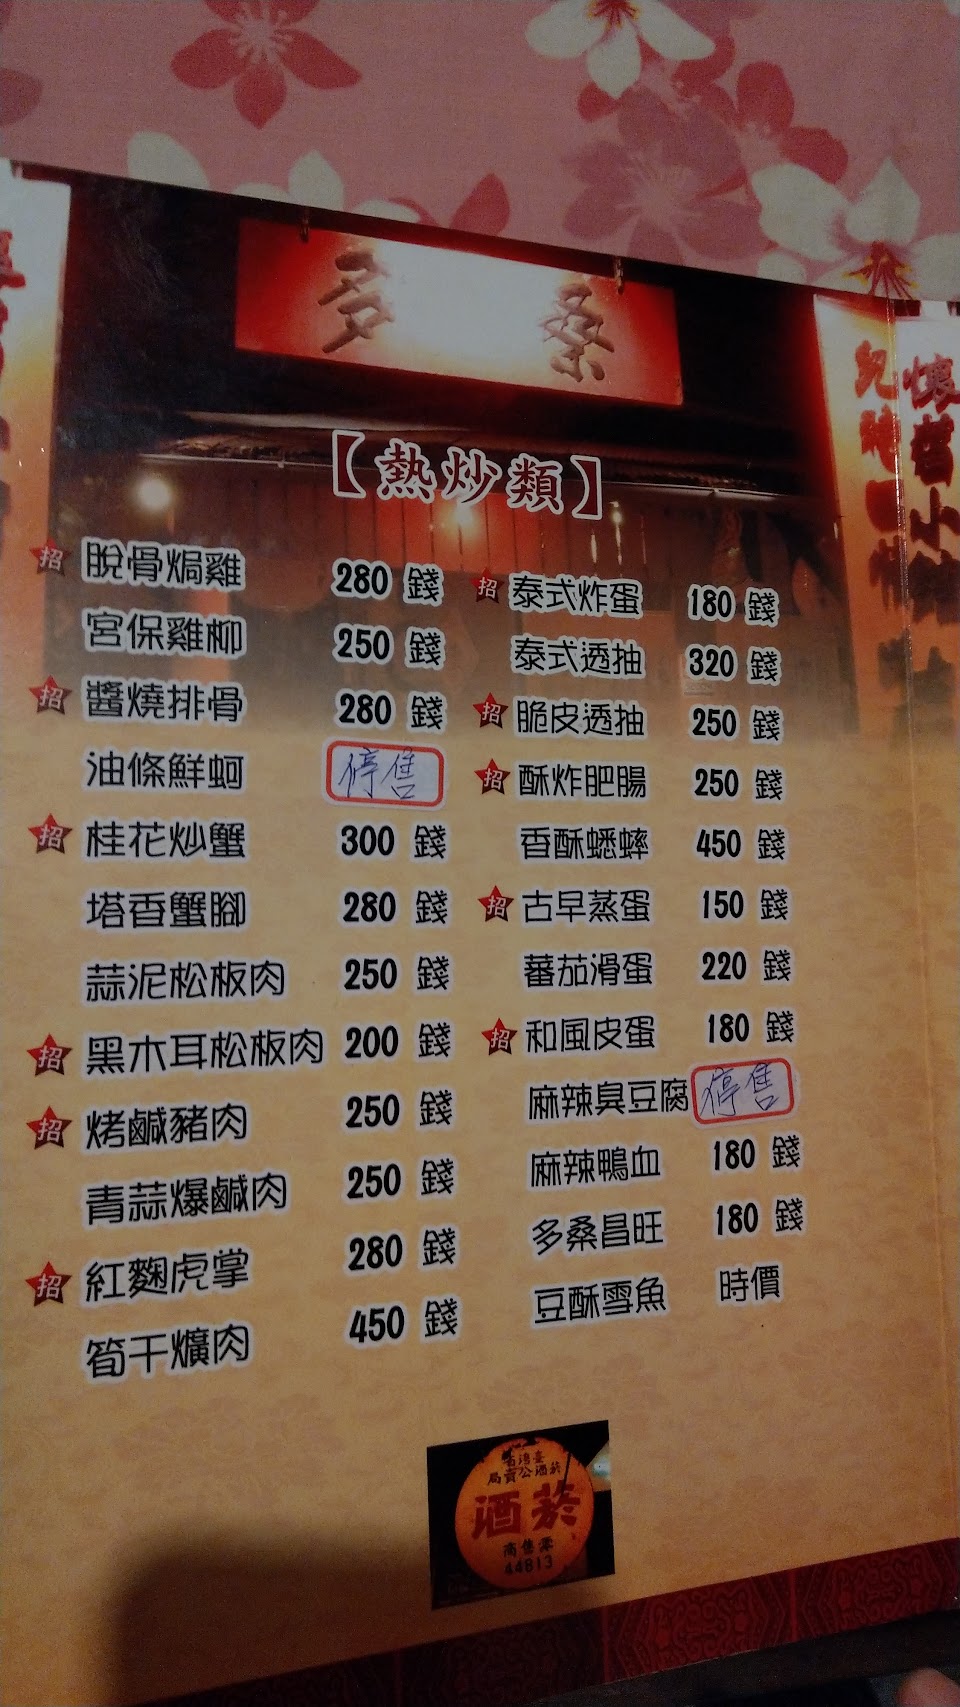 多桑
【熱炒類】
招 脫骨焗雞 280 錢
宮保雞柳 250 錢
招 醬燒排骨 280 錢
油條鮮蚵 停售
招 桂花炒蟹 300 錢
塔香蟹腳 280 錢
蒜泥松板肉 250 錢
招 黑木耳松板肉 200 錢
招 烤鹹豬肉 250 錢
青蒜爆鹹肉 250 錢
招 紅麴虎掌 280 錢
筍干爌肉 450 錢
招 泰式炸蛋 180 錢
泰式透抽 320 錢
招 脆皮透抽 250 錢
招 酥炸肥腸 250 錢
香酥蟋蟀 450 錢
招 古早蒸蛋 150 錢
蕃茄滑蛋 220 錢
招 和風皮蛋 180 錢
麻辣臭豆腐 停售
麻辣鴨血 180 錢
多桑昌旺 180 錢
豆酥雪魚 時價
懷舊小
臺灣省
菸酒公賣局
菸酒
零售商
44813